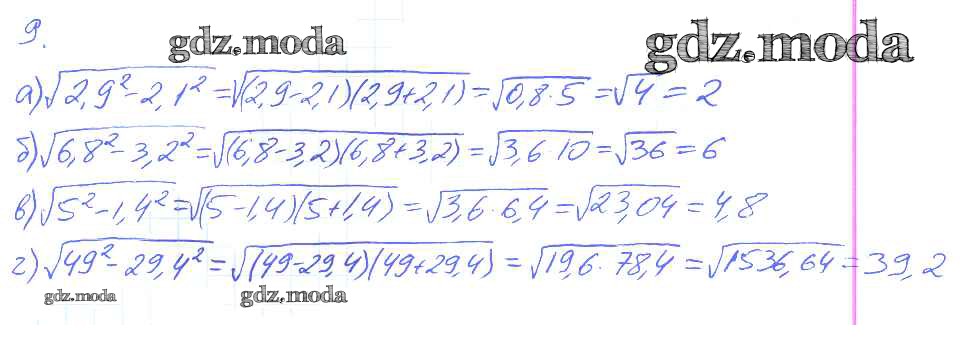 9.
gdz.moda gdz.moda
а) √2,9² - 2,1² = √(2,9-2,1)(2,9+2,1) = √0,8·5 = √4 = 2
б) √6,8² - 3,2² = √(6,8-3,2)(6,8+3,2) = √3,6·10 = √36 = 6
в) √5² - 1,4² = √(5-1,4)(5+1,4) = √3,6·6,4 = √23,04 = 4,8
г) √49² - 29,4² = √(49-29,4)(49+29,4) = √19,6·78,4 = √1536,64 = 39,2
gdz.moda gdz.moda